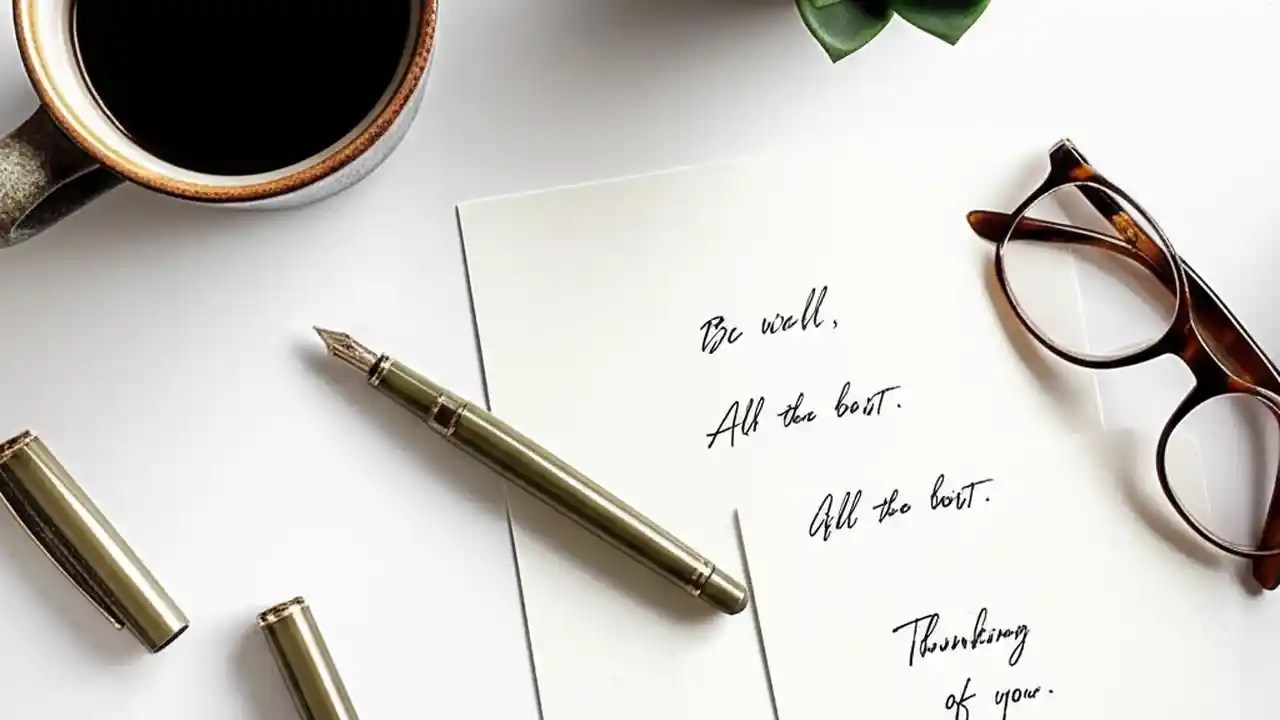 Be well,
All the best.
All the best.
Thinking
of you.